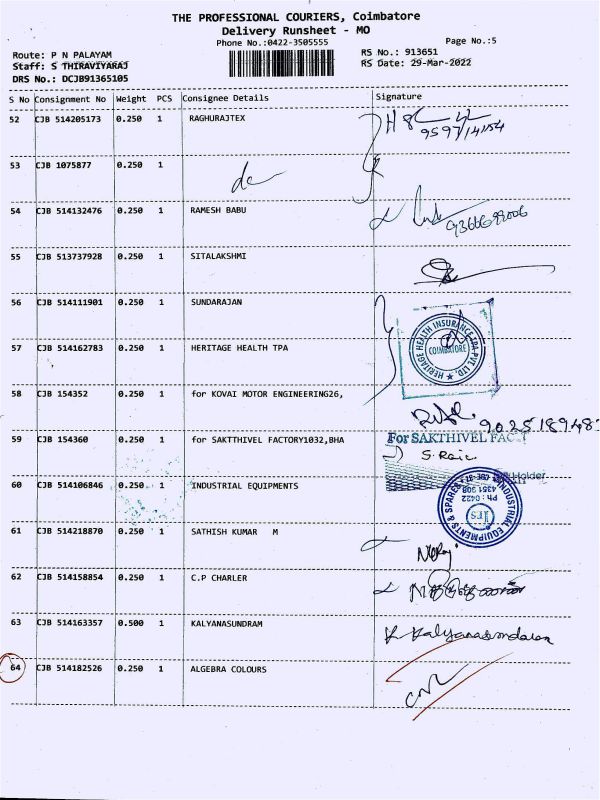 THE PROFESSIONAL COURIERS, Coimbatore
Delivery Runsheet - MO
Phone No.:0422-3505555
Page No.:5
Route: P N PALAYAM
RS No.: 913651
Staff: S THIRAVIYARAJ
RS Date: 29-Mar-2022
DRS No.: DCJB91365105
S No Consignment No Weight PCS Consignee Details Signature
52 CJB 514205173 0.250 1 RAGHURAJTEX
53 CJB 1075877 0.250 1
54 CJB 514132476 0.250 1 RAMESH BABU
55 CJB 513737928 0.250 1 SITALAKSHMI
56 CJB 514111901 0.250 1 SUNDARAJAN
57 CJB 514162783 0.250 1 HERITAGE HEALTH TPA
HERITAGE HEALTH INSURANCE TPA PVT. LTD.
COIMBATORE
58 CJB 154352 0.250 1 for KOVAI MOTOR ENGINEERING26,
9025189487
59 CJB 154360 0.250 1 for SAKTTHIVEL FACTORY1032,BHA
For SAKTHIVEL
60 CJB 514106846 0.250 1 INDUSTRIAL EQUIPMENTS
INDUSTRIAL EQUIPMENTS & SPARES
Ph : 0422
4351 908
61 CJB 514218870 0.250 1 SATHISH KUMAR M
62 CJB 514158854 0.250 1 C.P CHARLER
63 CJB 514163357 0.500 1 KALYANASUNDRAM
K Kalyanasundaram
64 CJB 514182526 0.250 1 ALGEBRA COLOURS